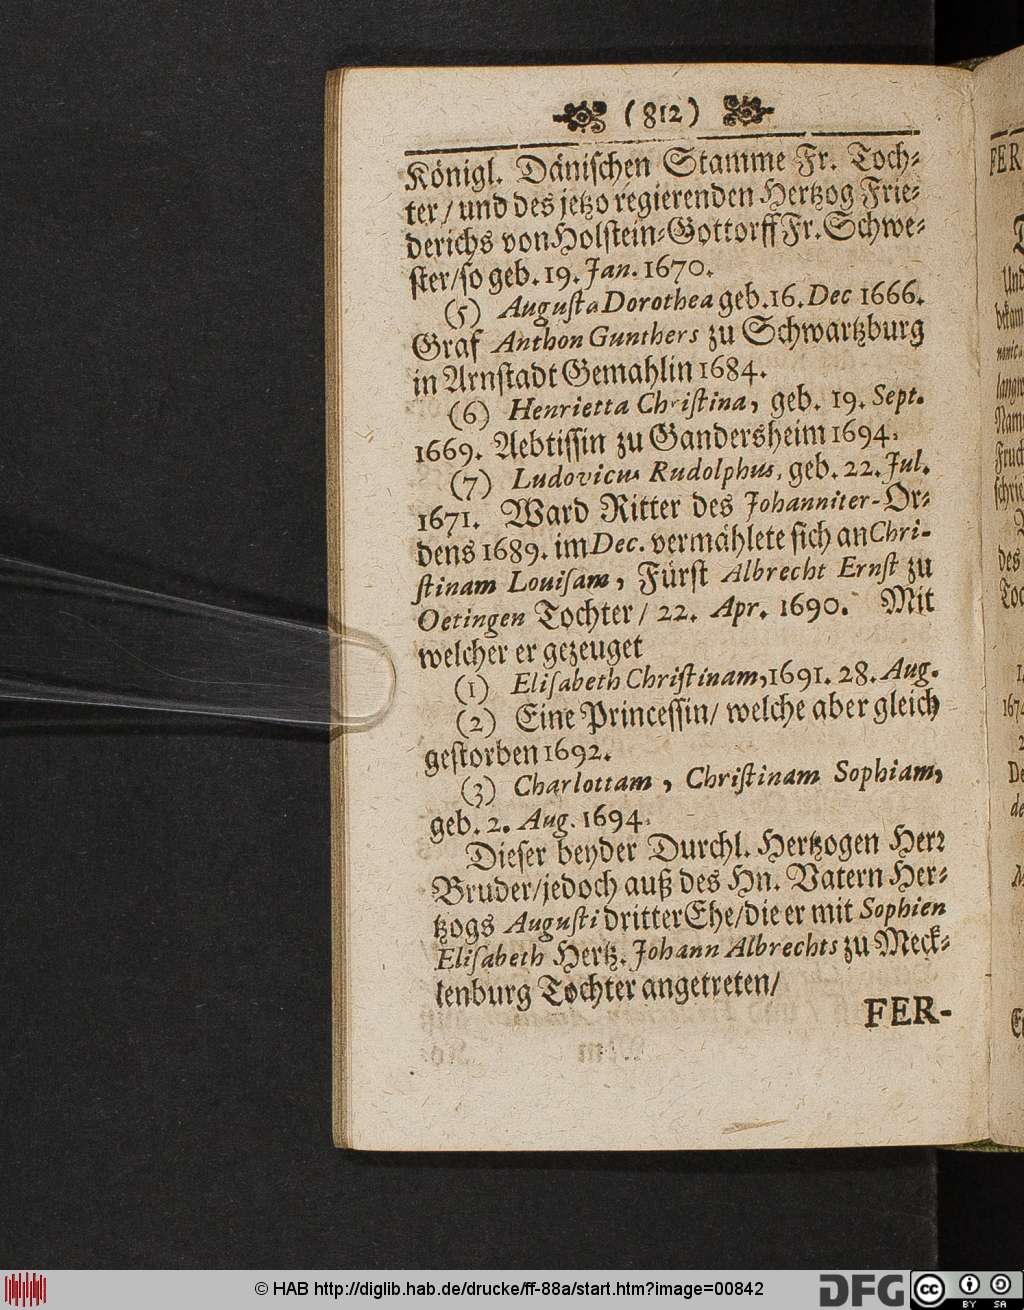 (812)
Königl. Dänischen Stamme Fr. Toch-
ter / und des jetzo regierenden Hertzog Frie-
derichs von Holstein-Gottorff Fr. Schwe-
ster/so geb. 19. Jan. 1670.
(5) Augusta Dorothea geb. 16. Dec 1666.
Graf Anthon Gunthers zu Schwartzburg
in Arnstadt Gemahlin 1684.
(6) Henrietta Christina, geb. 19. Sept.
1669. Aebtissin zu Gandersheim 1694.
(7) Ludovicus Rudolphus, geb. 22. Jul.
1671. Ward Ritter des Johanniter-Or-
dens 1689. im Dec. vermählete sich an Chri-
stinam Louisam, Fürst Albrecht Ernst zu
Oetingen Tochter / 22. Apr. 1690. Mit
welcher er gezeuget
(1) Elisabeth Christinam, 1691. 28. Aug.
(2) Eine Princessin/ welche aber gleich
gestorben 1692.
(3) Charlottam, Christinam Sophiam,
geb. 2. Aug. 1694.
Dieser beyder Durchl. Hertzogen Herr
Bruder/jedoch auß des Hn. Vatern Her-
tzogs Augusti dritter Ehe/die er mit Sophien
Elisabeth Hertz. Johann Albrechts zu Meck-
lenburg Tochter angetreten/
FER-
FER
Und
des
1674
© HAB http://diglib.hab.de/drucke/ff-88a/start.htm?image=00842
DFG
cc
BY SA